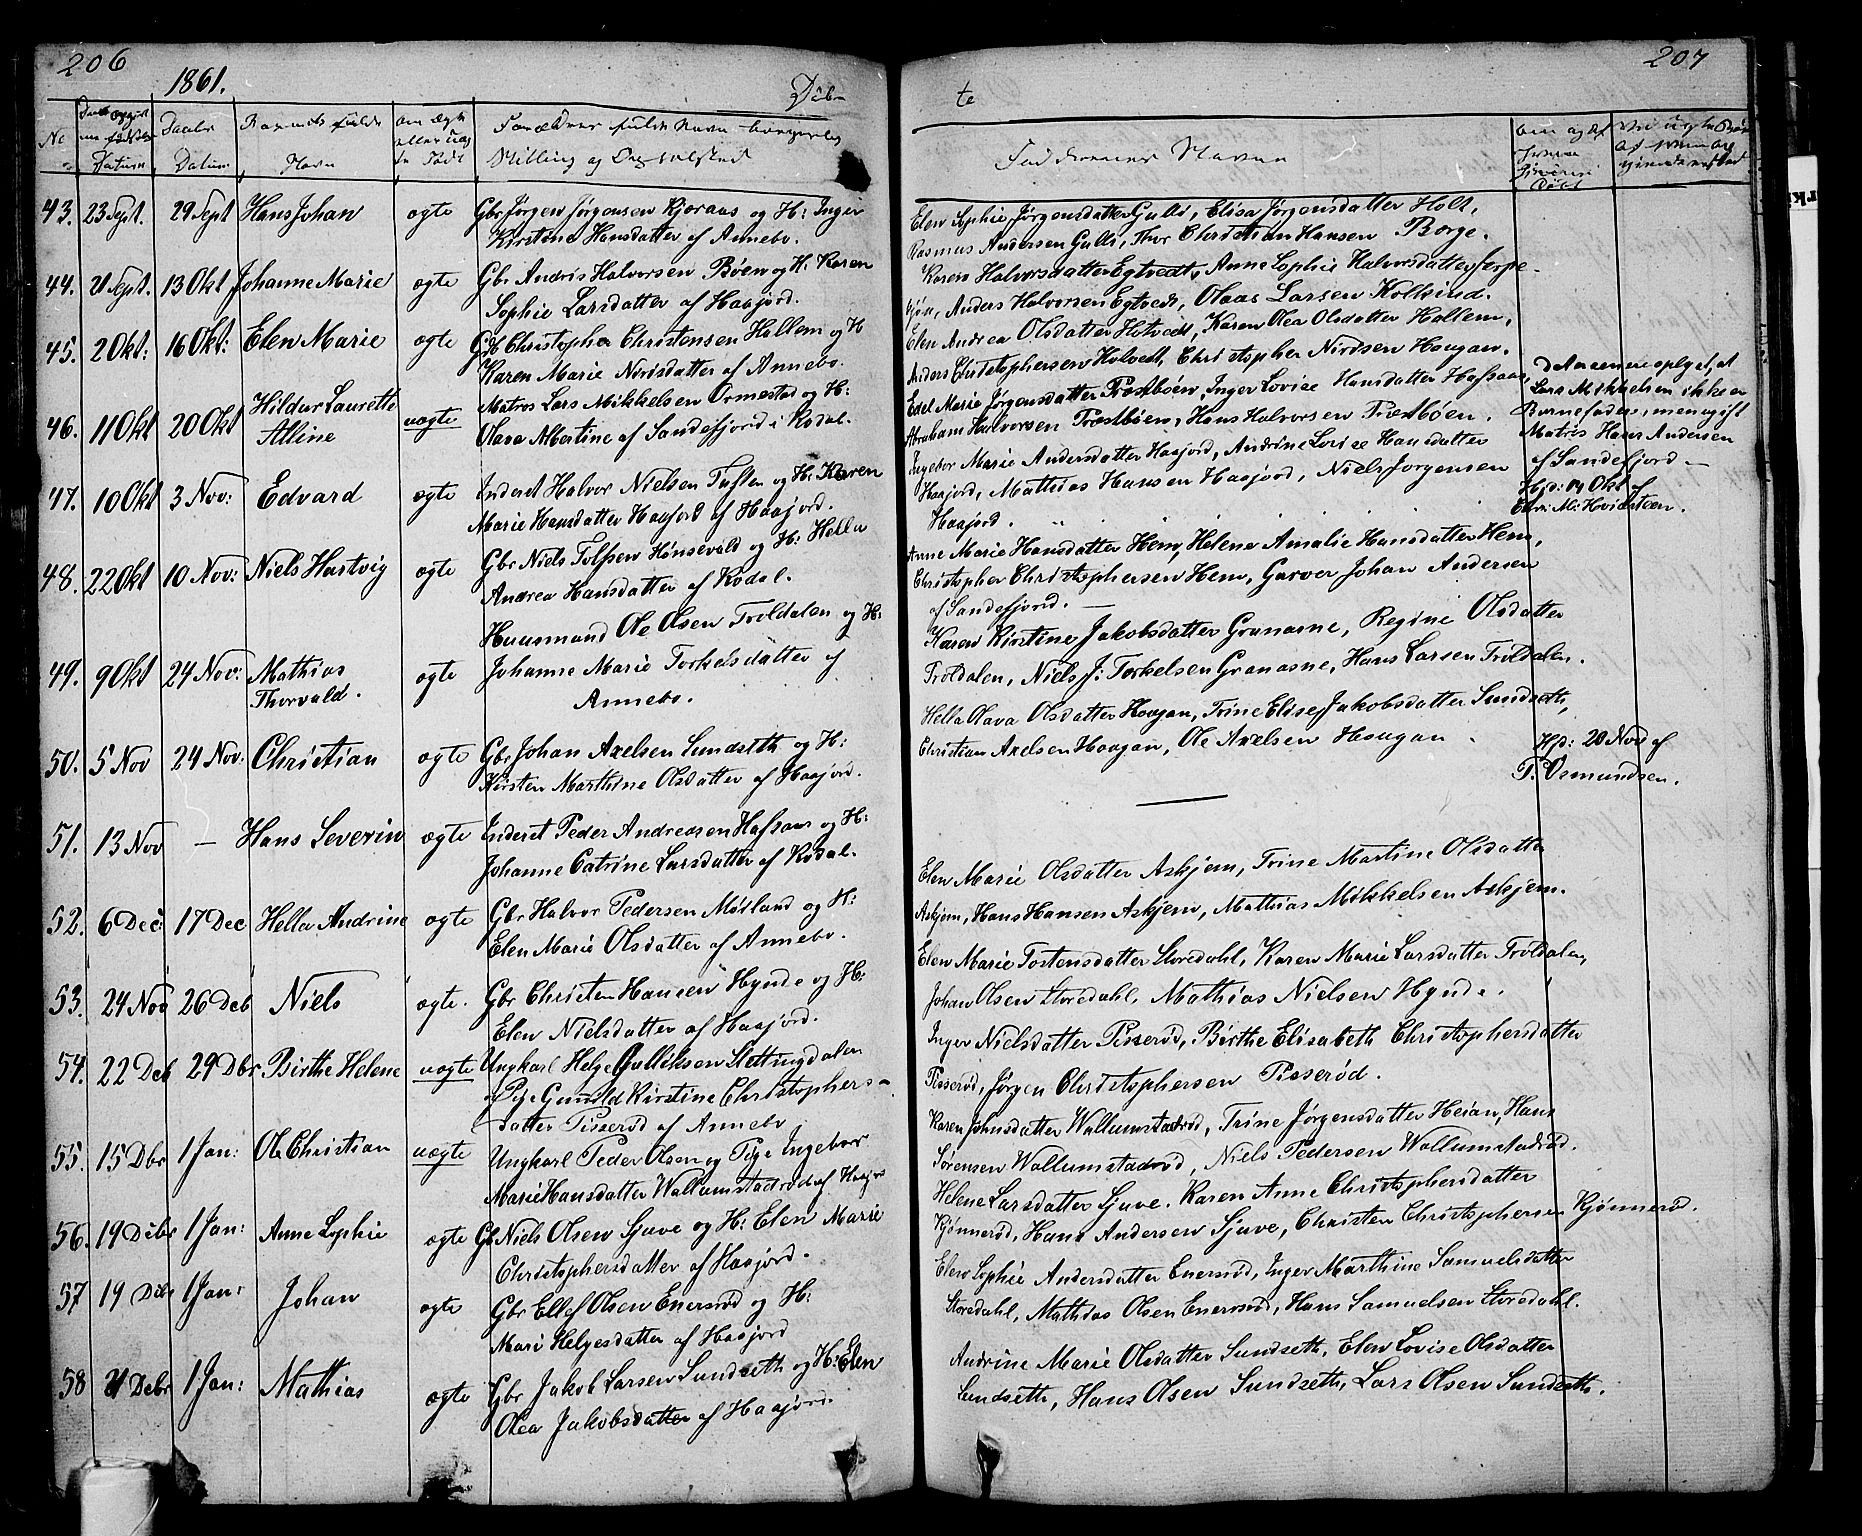 206
1861.
Døb-
No
Datum
Daabs
Datum
Barnets fulde
Navn
Forældres fulde Navn borgerlig
Stilling og Opholdssted
43. 23 Sept. 29 Sept Hans Johan ægte Gbr Jørgen Jørgensen Kjøraas og H: Inger
Kirstine Hansdatter af Annebo.
44. 21 Sept. 13 Okt Johanne Marie ægte Gbr Andris Halvorsen Bøen og H: Karen
Sophie Larsdatter af Haasjord.
45. 2 Okt: 16 Okt: Elen Marie ægte Gbr Christopher Christensen Hallem og H
Karen Marie Norisdatter af Annebo.
46. 11 Okt 20 Okt Hildur Laurette
Alline uægte Matros Lars Mikkelsen Ormestad og H:
Olava Albertine af Sandefjord i Kodal.
47. 10 Okt 3 Nov: Edvard ægte Inderst Halvor Nielsen Tuften og H: Karen
Marie Hansdatter Haasjord af Haasjord.
48. 22 Okt 10 Nov: Niels Hartvig ægte Gbr Niels Tolfsen Hønsevald og H: Hella
Andrea Hansdatter af Kodal.
49. 9 Okt 24 Nov: Mathias
Thorvald. ægte Huusmand Ole Olsen Troldalen og H:
Johanne Marie Torkelsdatter af
Annebo.
50. 5 Nov 24 Nov: Christian ægte Gbr Johan Axelsen Sundseth og H:
Kirsten Marthine Olsdatter af Haasjord.
51. 13 Nov — Hans Severin ægte Inderst Peder Andreasen Hafsaas og H:
Johanne Catrine Larsdatter af Kodal.
52. 6 Dec: 17 Dec Hella Andrine ægte Gbr Halvor Pedersen Møiland og H:
Elen Marie Olsdatter af Annebo.
53. 24 Nov 26 Deb Niels ægte. Gbr Christen Hansen Hynde og H:
Elen Nielsdatter af Haasjord.
54. 22 Deb 29 Dbr Birthe Helene uægte Ungkarl Helge Gulliksen Slettingdalen
Pige Gunild Kirstine Christophers-
datter Pisserød af Annebo.
55. 15 Dbr 1 Jan: Ole Christian uægte Ungkarl Peder Olsen og Pige Ingebor
Marie Hansdatter Wallumstadrød af Haasjord
56. 19 Debr 1 Jan: Anne Sophie ægte Gb Niels Olsen Sjuve og H: Elen Marie
Christophersdatter af Haasjord.
57 19 Debr 1 Jan: Johan ægte Gbr Ellef Olsen Enersrød og H:
Mari Helgesdatter af Haasjord
58 21 Debr 1 Jan: Mathias ægte Gbr Jakob Larsen Sundseth og H: Elen
Olea Jakobsdatter af Haasjord.
207
te
Faddernes Navne
Elen Sophie Jørgensdatter Gulli, Elisa Jørgensdatter Holt,
Rasmus Andersen Gulli, Thor Christian Hansen Borge.
Karen Halvorsdatter Egtvedt, Anne Sophie Halvorsdatter Jerpe-
kjøn, Anders Halvorsen Egtvedt, Olaas Larsen Kolkind.
Elen Andrea Olsdatter Hotvedt, Karen Olea Olsdatter Hallem,
Anders Christophersen Holvedt, Christopher Nirisen Haugan.
Edel Marie Jørgensdatter Præstbøen, Inger Lovise Hansdatter Hafsaas,
Abraham Halvorsen Præstbøen, Hans Halvorsen Præstbøen.
Ingebor Marie Andersdatter Haasjord, Andrine Lovise Hansdatter
Haasjord, Mathias Hansen Haasjord, Niels Jørgensen
Haasjord.
Anne Marie Hansdatter Hem, Helene Amalie Hansdatter Hem,
Christopher Christophersen Hem, Garver Johan Andersen
af Sandefjord. —
Karen Kirstine Jakobsdatter Granasne, Regine Olsdatter
Troldalen, Niels J: Torkelsen Granasne, Hans Larsen Troldalen.
Hella Olava Olsdatter Haagan, Trine Elise Jakobsdatter Sundseth,
Christian Axelsen Haagan, Ole Axelsen Haugan.
—
Elen Marie Olsdatter Askjem, Trine Martine Olsdatter
Askjem, Hans Hansen Askjem, Mathias Mikkelsen Askjem.
Elen Marie Tostensdatter Storedahl, Karen Marie Larsdatter Troldalen,
Johan Olsen Storedahl, Mathias Nielsen Hynde.
Inger Nielsdatter Pisserød, Birthe Elisabeth Christophersdatter
Pisserød, Jørgen Christophersen Pisserød.
Karen Johnsdatter Wallumstadrød, Trine Jørgensdatter Heian, Hans
Sørensen Wallumstadrød, Niels Pedersen Wallumstadrød.
Helene Larsdatter Sjuve. Karen Anne Christophersdatter
Kjønnerød, Hans Andersen Sjuve, Christen Christophersen Kjønnerød.
Elen Sophie Andersdatter Enersrød, Inger Marthine Samuelsdatter
Storedahl, Mathias Olsen Enersrød, Hans Samuelsen Storedahl.
Andrine Marie Olsdatter Sundseth, Elen Lovise Olsdatter
Sundseth, Hans Olsen Sundseth, Lars Olsen Sundseth.
Lars Mikkelsen ikke er
Barnefader, men ugift
Matros Hans Andersen
af Sandefjord —
Hjd: 14 Okt af
Hvidsteen.
Hjd: 20 Nov af
T. Osmundsen.